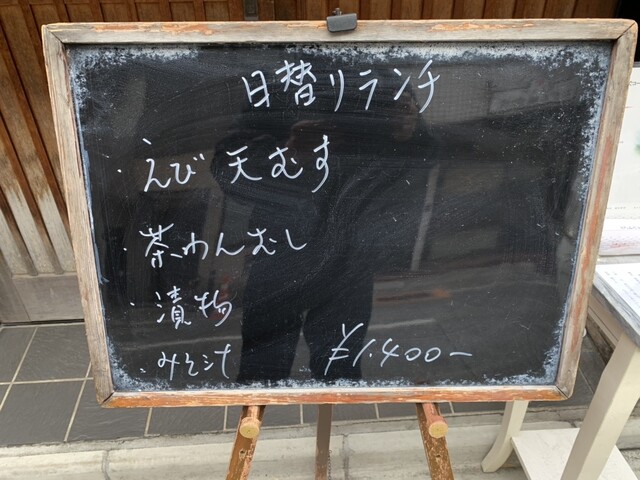 日替りランチ
・えび天むす
・茶わんむし
・漬物
・みそ汁 ¥1.400-